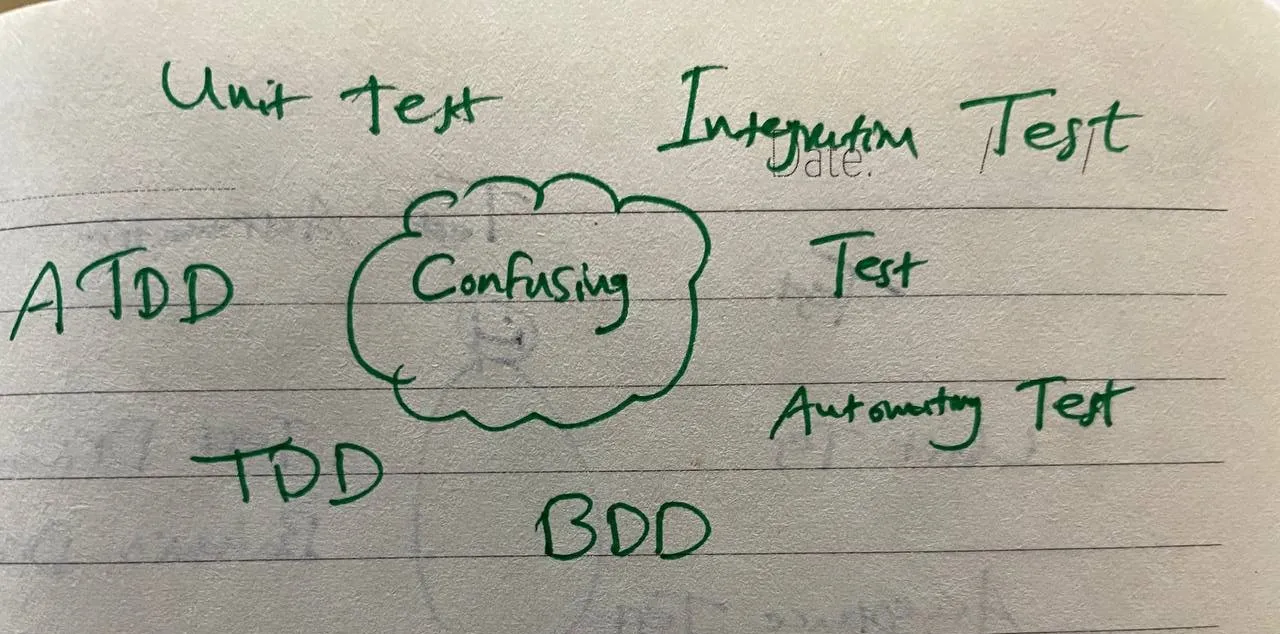 Unit Test
Integration Test
Date.
ATDD
Confusing
Test
Automating Test
TDD
BDD